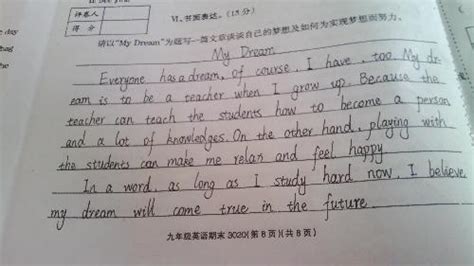 day
that
the
评卷人
得 分
VI. 书面表达。(15分)
请以"My Dream"为题写一篇文章谈谈自己的梦想及如何为实现梦想而努力。
My Dream
Everyone has a dream, of course, I have, too. My dr-
eam is to be a teacher when I grow up. Because the
teacher can teach the students how to become a person
and a lot of knowledges. On the other hand, playing with
the students can make me relax and feel happy
In a word, as long as I study hard now, I believe
my dream will come true in the future
九年级英语期末 3020(第8页)(共8页)